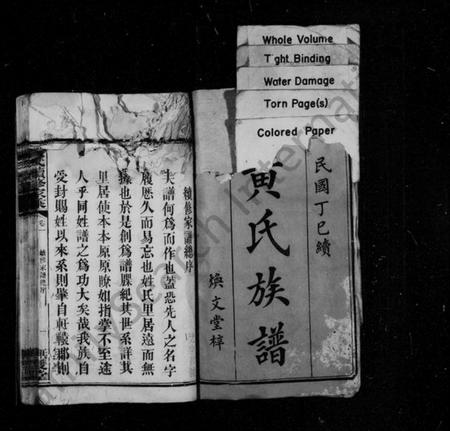 Whole Volume
Tight Binding
Water Damage
Torn Page(s)
Colored Paper
民國丁巳續
黄氏族譜
煥文堂梓
續修家譜總序
夫譜何為而作也蓋恐先人之名字
履歷久而易忘也姓氏里居遠而無
據也於是創為譜牒紀其世系詳其
里居使本本原原瞭如指掌不至途
人乎同姓譜之為功大矣哉我族自
受封賜姓以來系則肇自軒轅郡則